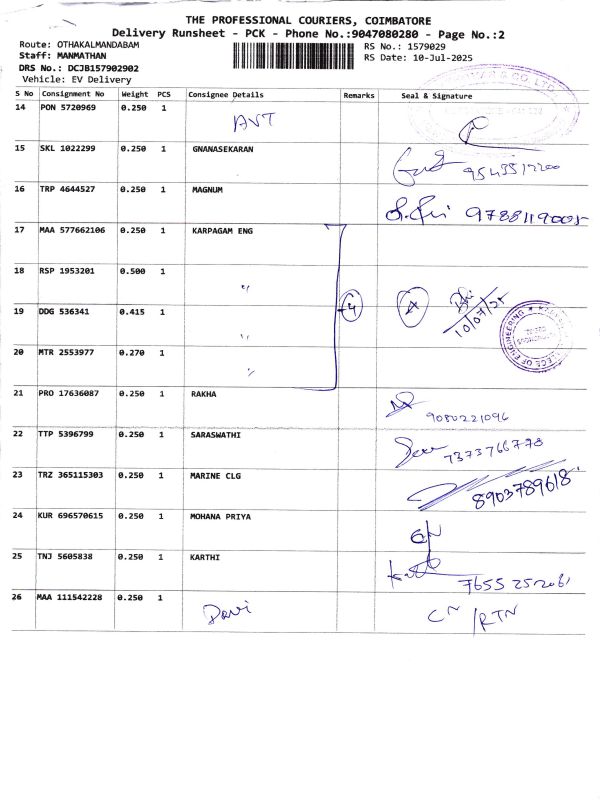 THE PROFESSIONAL COURIERS, COIMBATORE
Delivery Runsheet - PCK - Phone No.:9047080280 - Page No.:2
Route: OTHAKALMANDABAM RS No.: 1579029
Staff: MANMATHAN RS Date: 10-Jul-2025
DRS No.: DCJB157902902
Vehicle: EV Delivery
S No Consignment No Weight PCS Consignee Details Remarks Seal & Signature
14 PON 5720969 0.250 1 AVT
15 SKL 1022299 0.250 1 GNANASEKARAN
16 TRP 4644527 0.250 1 MAGNUM
17 MAA 577662106 0.250 1 KARPAGAM ENG
18 RSP 1953201 0.500 1 "
19 DDG 536341 0.415 1 " 4 A 10/07/25 COLLEGE OF ENGINEERING
20 MTR 2553977 0.270 1 "
21 PRO 17636087 0.250 1 RAKHA 9080221096
22 TTP 5396799 0.250 1 SARASWATHI 7373766778
23 TRZ 365115303 0.250 1 MARINE CLG 8903789618
24 KUR 696570615 0.250 1 MOHANA PRIYA CN
25 TNJ 5605838 0.250 1 KARTHI
26 MAA 111542228 0.250 1 Davi CN/RTN